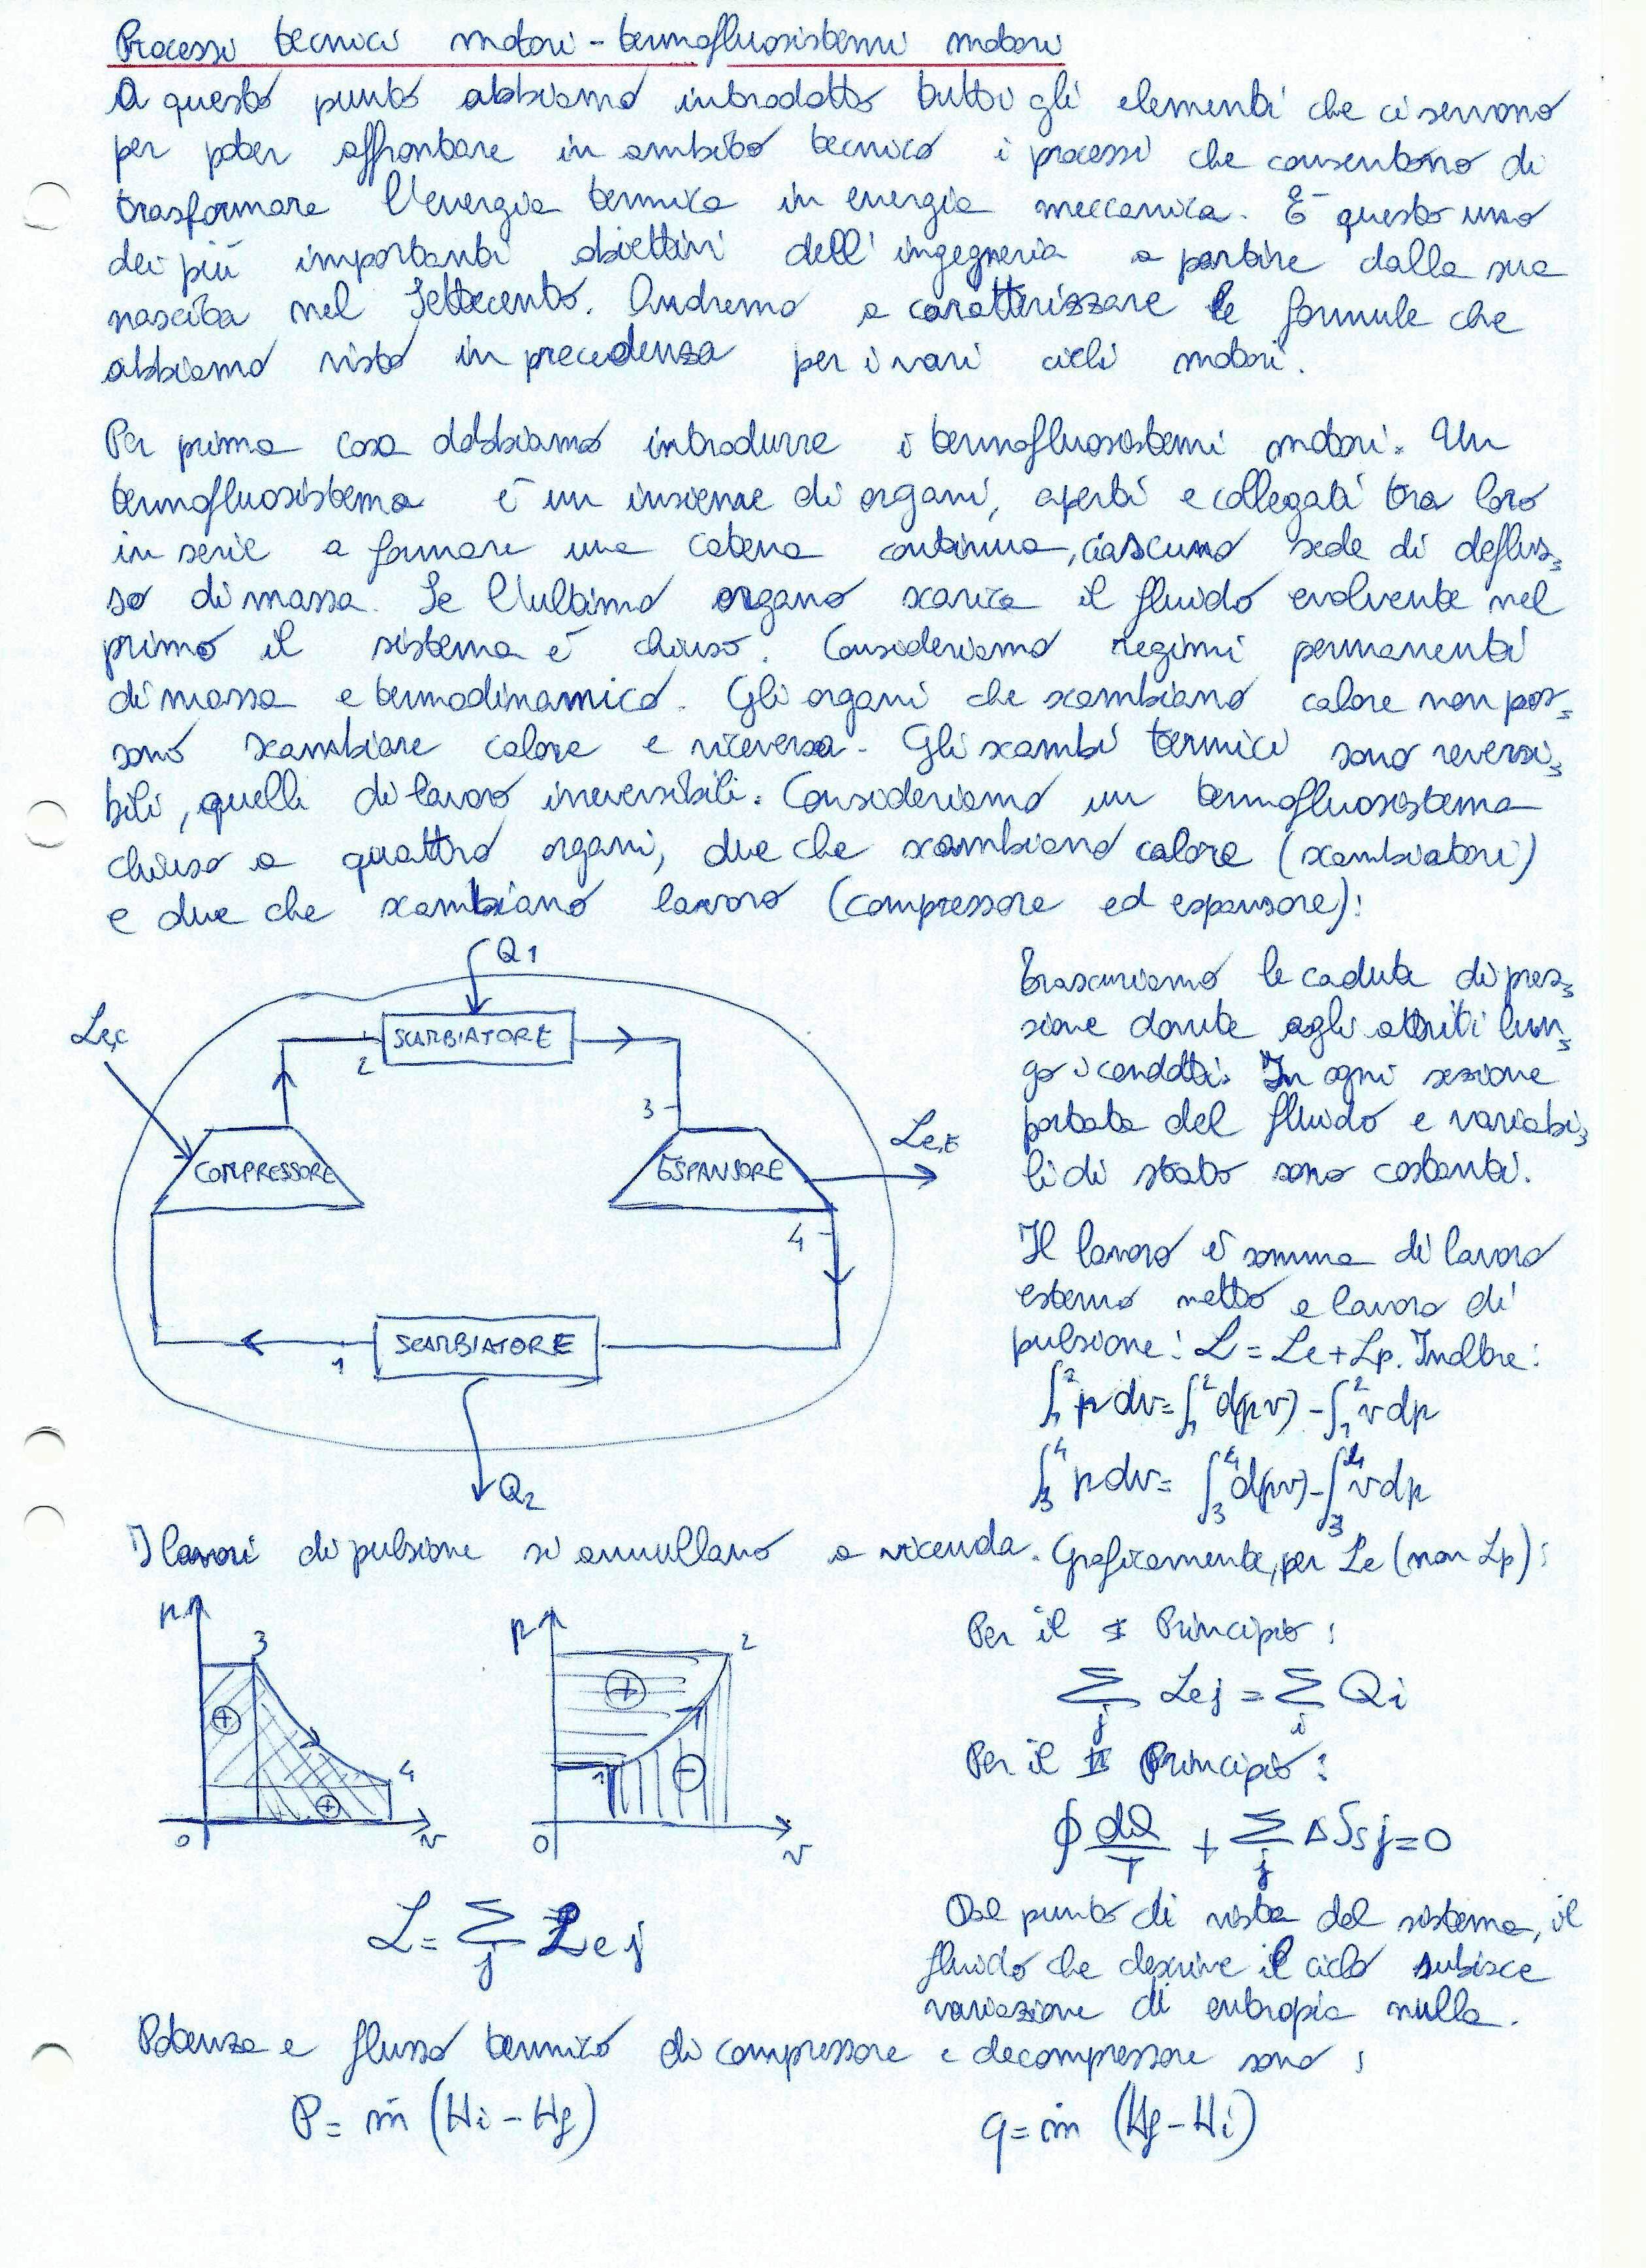 Processi tecnici motori - termofluosistemi motori
A questo punto abbiamo introdotto tutti gli elementi che ci servono
per poter affrontare in ambito tecnico i processi che consentono di
trasformare l'energia termica in energia meccanica. È questo uno
dei più importanti obiettivi dell'ingegneria a partire dalla sua
nascita nel Settecento. Andremo a caratterizzare le formule che
abbiamo visto in precedenza per i vari cicli motori.
Per prima cosa dobbiamo introdurre i termofluosistemi motori. Un
termofluosistema è un insieme di organi, aperti e collegati tra loro
in serie a formare una catena continua, ciascuno sede di deflus=
so di massa. Se l'ultimo organo scarica il fluido evolvente nel
primo il sistema è chiuso. Consideriamo regimi permanenti
di massa e termodinamico. Gli organi che scambiano calore non pos=
sono scambiare calore e viceversa. Gli scambi termici sono reversi=
bili, quelli di lavoro irreversibili. Consideriamo un termofluosistema
chiuso a quattro organi, due che scambiano calore (scambiatori)
e due che scambiano lavoro (compressore ed espansore):
Q1
Le,c
SCAMBIATORE
2
3
COMPRESSORE
ESPANSORE
Le,E
4
SCAMBIATORE
1
Q2
Trascuriamo le cadute di pres=
sione dovute agli attriti lun=
go i condotti. In ogni sezione
portata del fluido e variabi=
li di stato sono costanti.
Il lavoro è somma di lavoro
esterno netto e lavoro di
pulsione: L = Le + Lp. Inoltre:
∫₁² p dv = ∫₁² d(pv) - ∫₁² v dp
∫₃⁴ p dv = ∫₃⁴ d(pv) - ∫₃⁴ v dp
I lavori di pulsione si annullano a vicenda. Graficamente, per Le (non Lp):
p 3 + + 4 0 v
p 2 + 1 - 0 v
L = Σj Le j
Per il I Principio:
Σj Le j = Σi Qi
Per il II Principio:
∮ dQ/T + Σj ΔSs j = 0
Dal punto di vista del sistema, il
fluido che descrive il ciclo subisce
variazione di entropia nulla.
Potenza e flusso termico di compressore e decompressore sono:
P = ṁ (Hi - Hf)
q = ṁ (Hf - Hi)